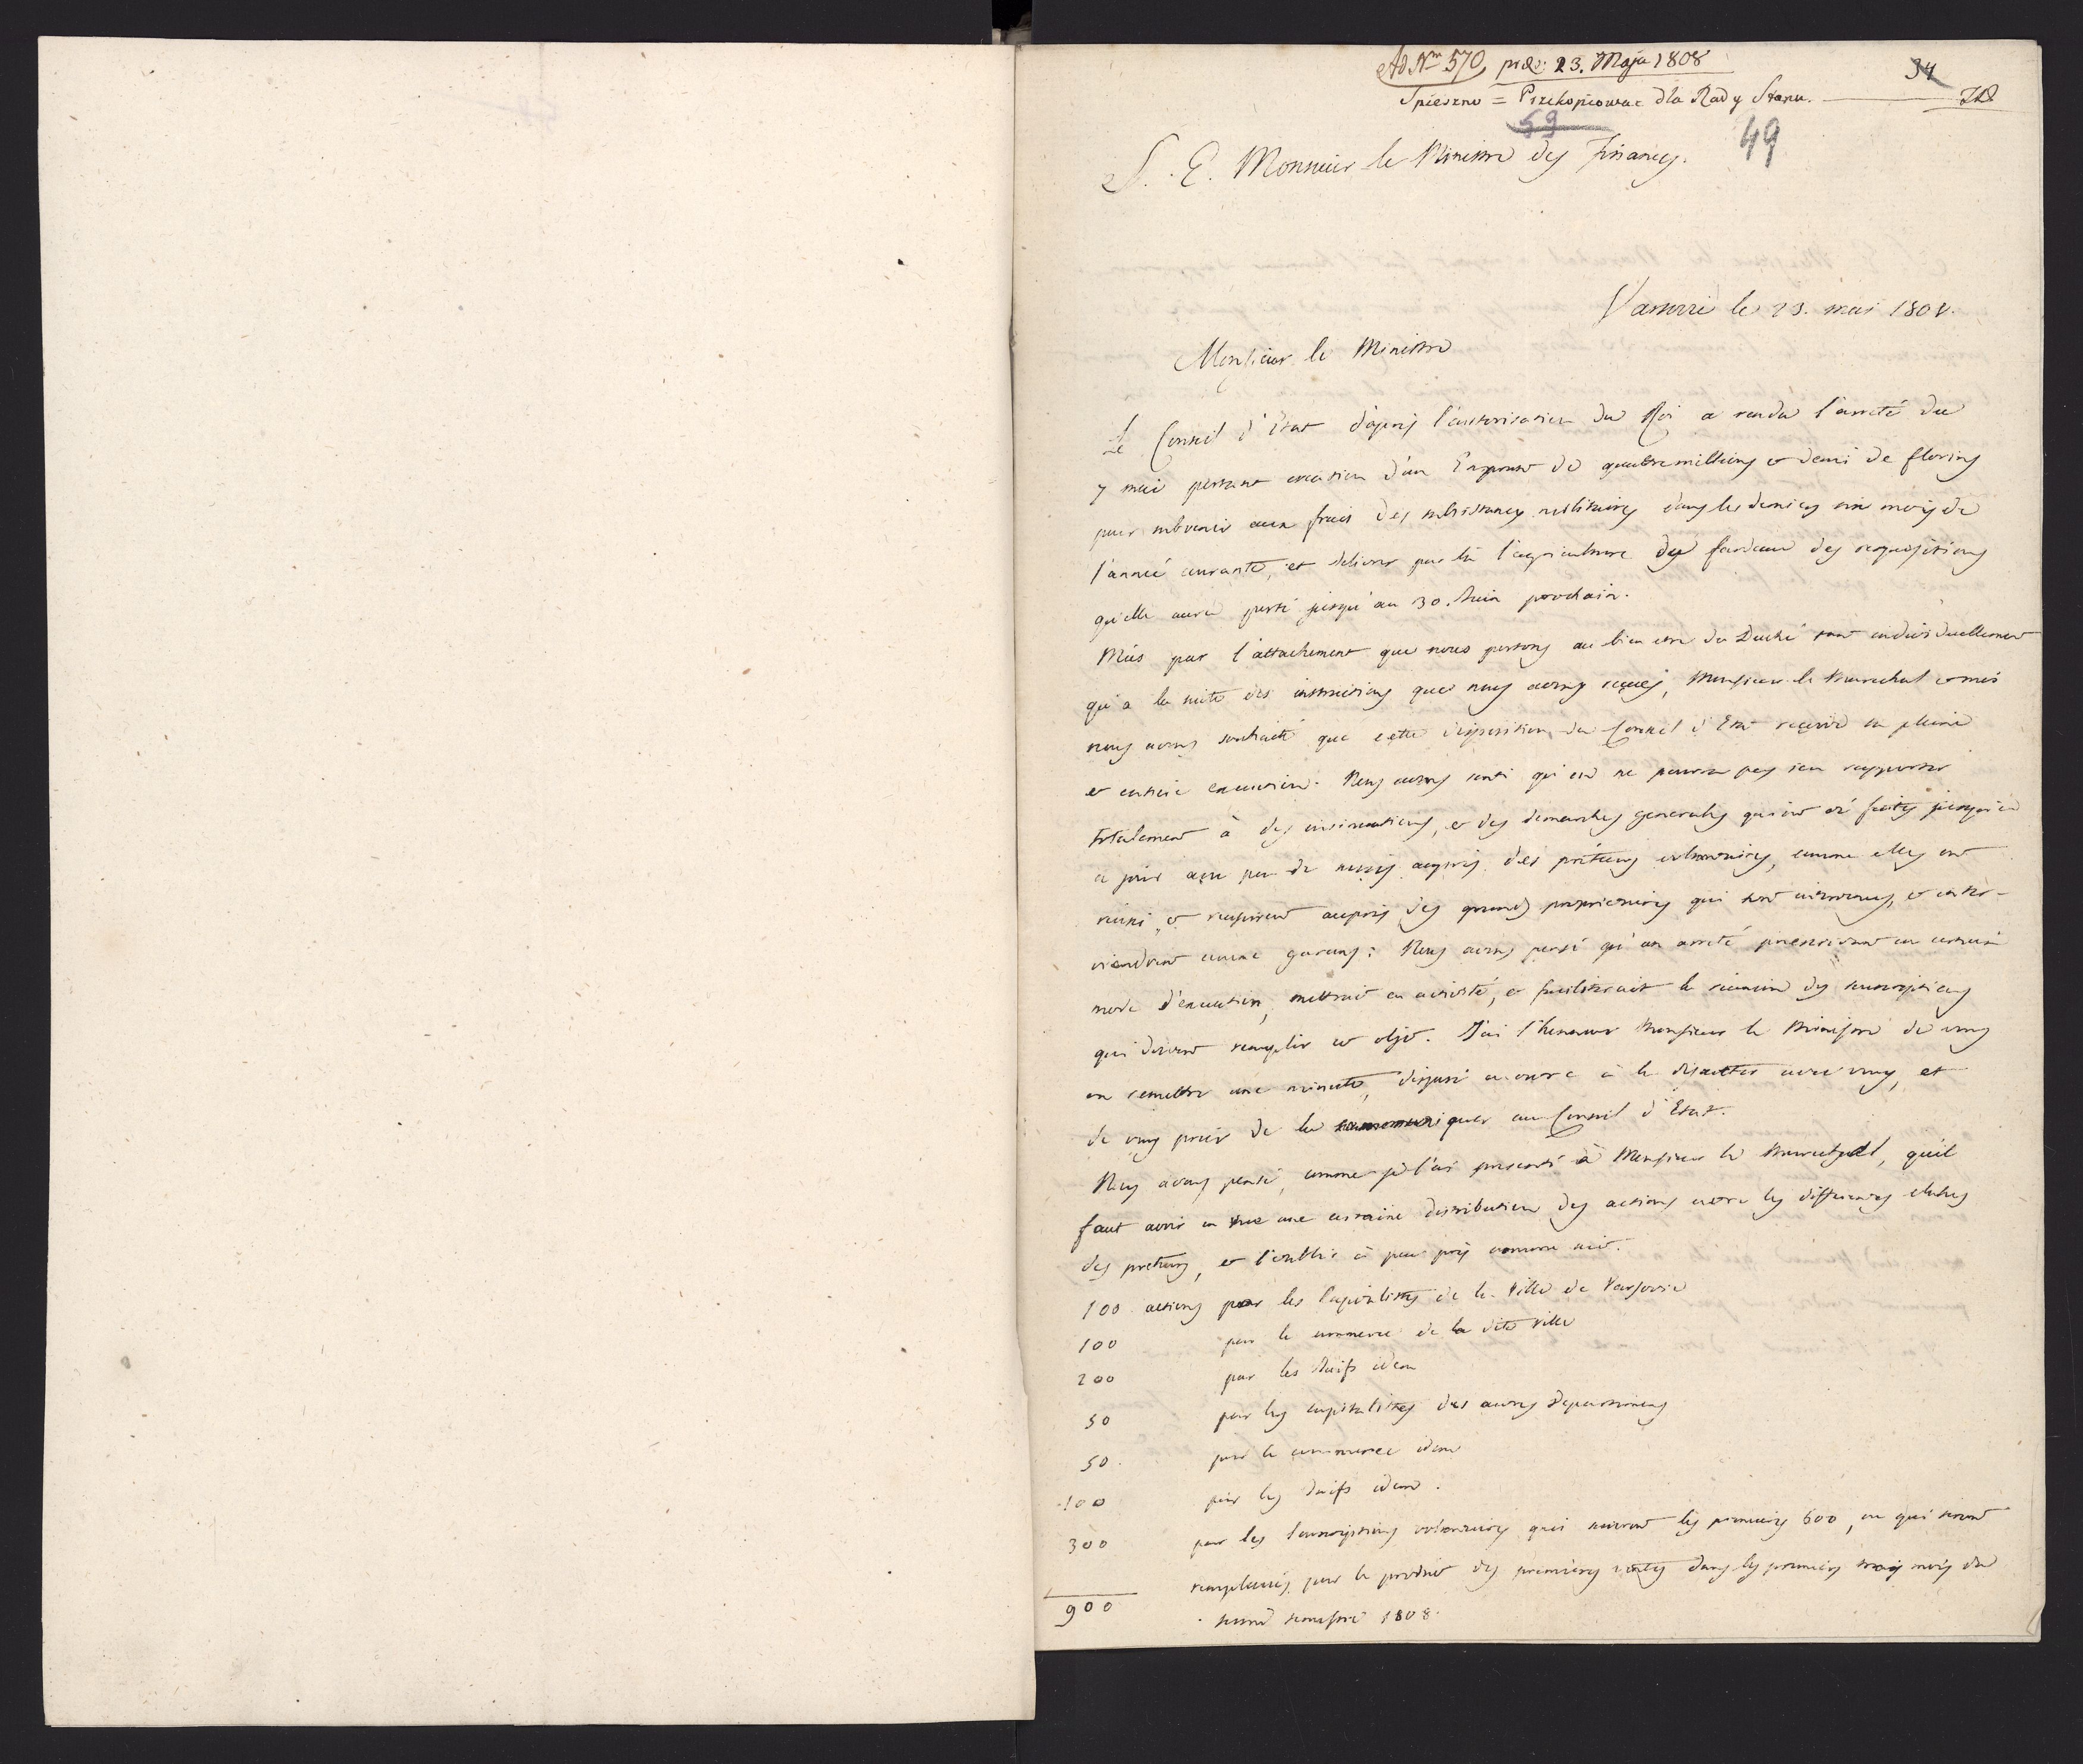 Ad Nrm 570, pr. d. 23. Maja 1808
34
Spieszno = Przekopiowac dla Rady Stanu.
59
49
S. E. Monsieur le Ministre des finances.
Varsovie le 23. mai 1808.
Monsieur le Ministre
Le Conseil d'Etat d'après l'autorisation du Roi a rendu l'arreté du
7 mai portant création d'un Emprunt de quatre millions et demi de florins
pour subvenir aux frais des subsistances militaires dans les derniers six mois de
l'année courante, et delivrer par là l'agriculture du fardeau des requisitions
qu'elle aura porté jusqu'au 30. Juin prochain.
Mus par l'attachement que nous portons au bien etre du Duché tant individuellement
qu'a la suite des instructions que nous avons reçues, Monsieur le Marechal et moi
nous avons souhaité que cette disposition du Conseil d'Etat reçoive sa pleine
et entiere execution. Nous avons senti qu'on ne pouvoit pas s'en rapporter
totalement à des insinuations, et des demarches generales qui ont été faites jusqu'à
ce jour avec peu de succès auprès des prêteurs volontaires, comme elles ont
réussi et reussiront auprès des grands proprietaires qui sont intervenus, et inter-
viendront comme garants: Nous avons pensé qu'un arreté prescrivant un certain
mode d'execution, mettroit en activité, et faciliterait la réunion des souscriptions
qui doivent remplir cet objet. J'ai l'honneur Monsieur le Ministre de vous
en remettre une minute, disposé encore à la discutter avec vous, et
de vous prier de la communiquer au Conseil d'Etat.
Nous avons pensé, comme je l'ai presenté à Monsieur le Marechal, qu'il
faut avoir en vue une certaine distribution des actions entre les differentes classes
des preteurs, et l'etablir à peu près comme suit.
100 actions pour les Capitalistes de la Ville de Varsovie
100 pour le commerce de la dite Ville
200 pour les Juifs idem
50 pour les capitalistes des autres Departemens
50. pour le commerce idem
100 pour les Juifs idem.
300 pour les souscriptions volontaires qui suivront les premieres 600, ou qui seront
remplacées par le produit des premieres ventes dans les premiers trois mois du
900 second semestre 1808.